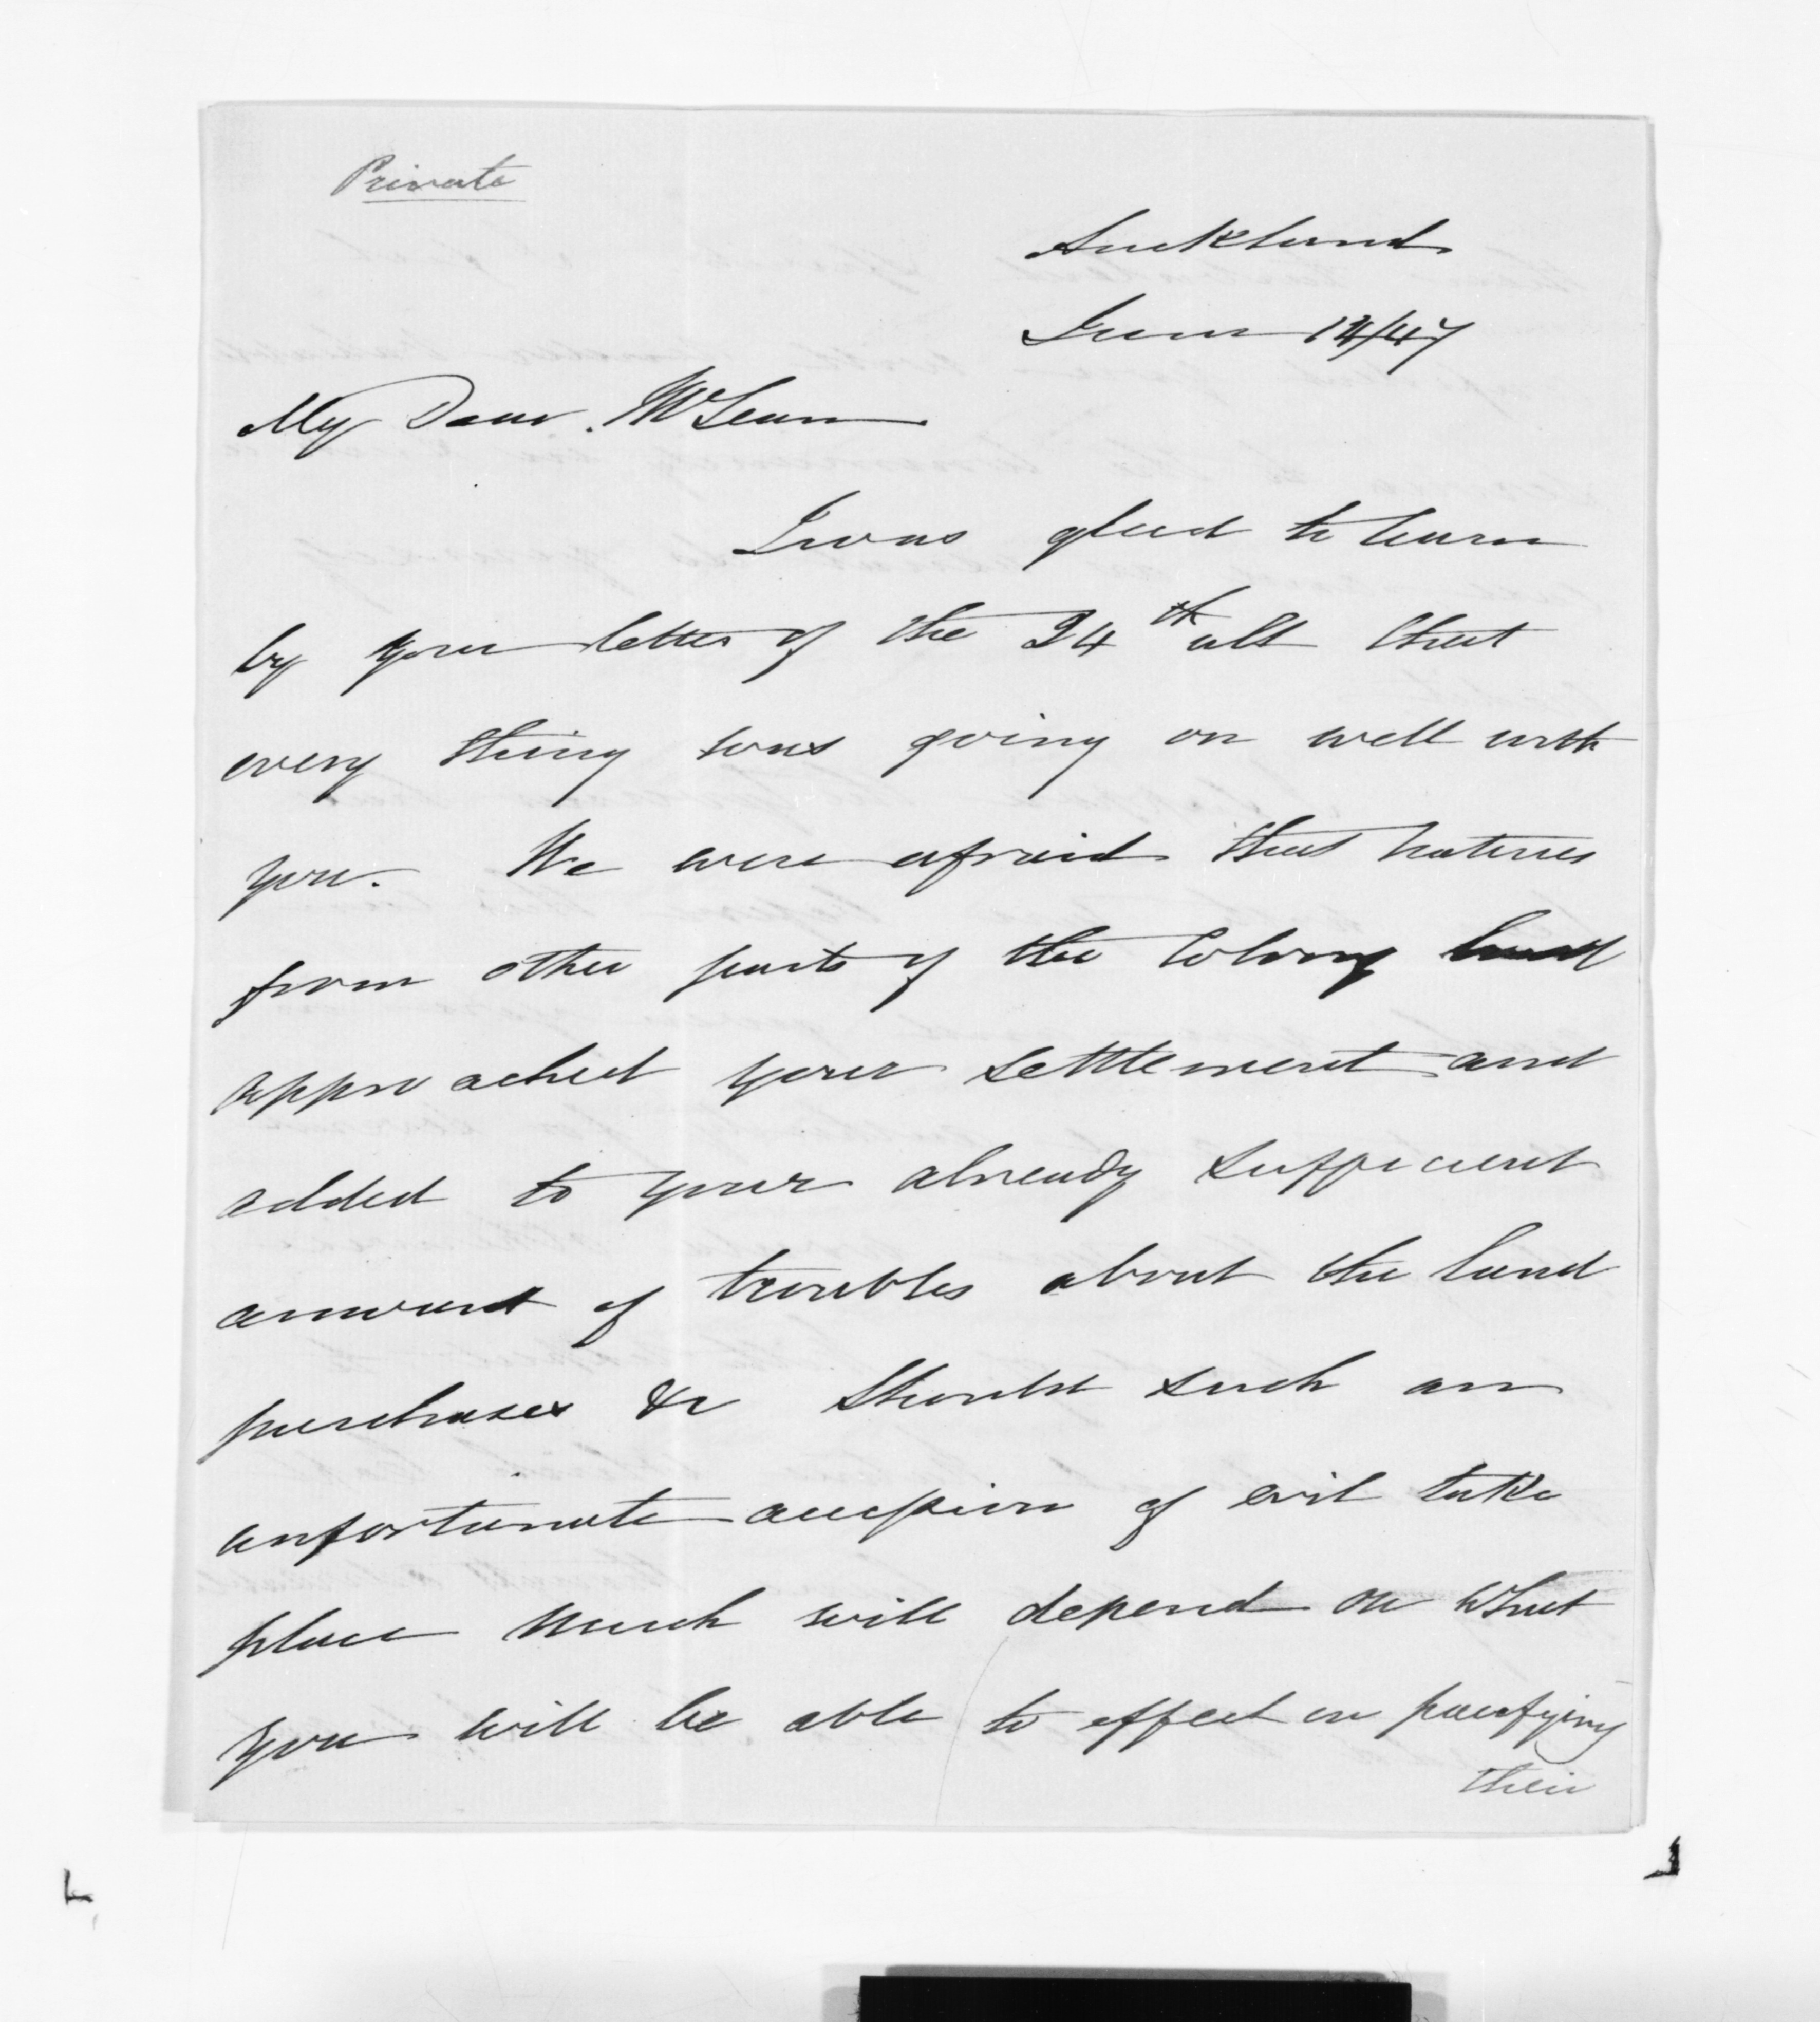 Private
Auckland
June 14/47
My Dear McLean
I was glad to learn
by your letter of the 24th ult that
every thing was going on well with
you. We were afraid that natives
from other parts of the Colony had
approached your settlement and
added to your already sufficient
amount of troubles about the land
purchases &c Should such an
unfortunate accession of evil take
place much will depend on what
you will be able to effect in pacifying
their